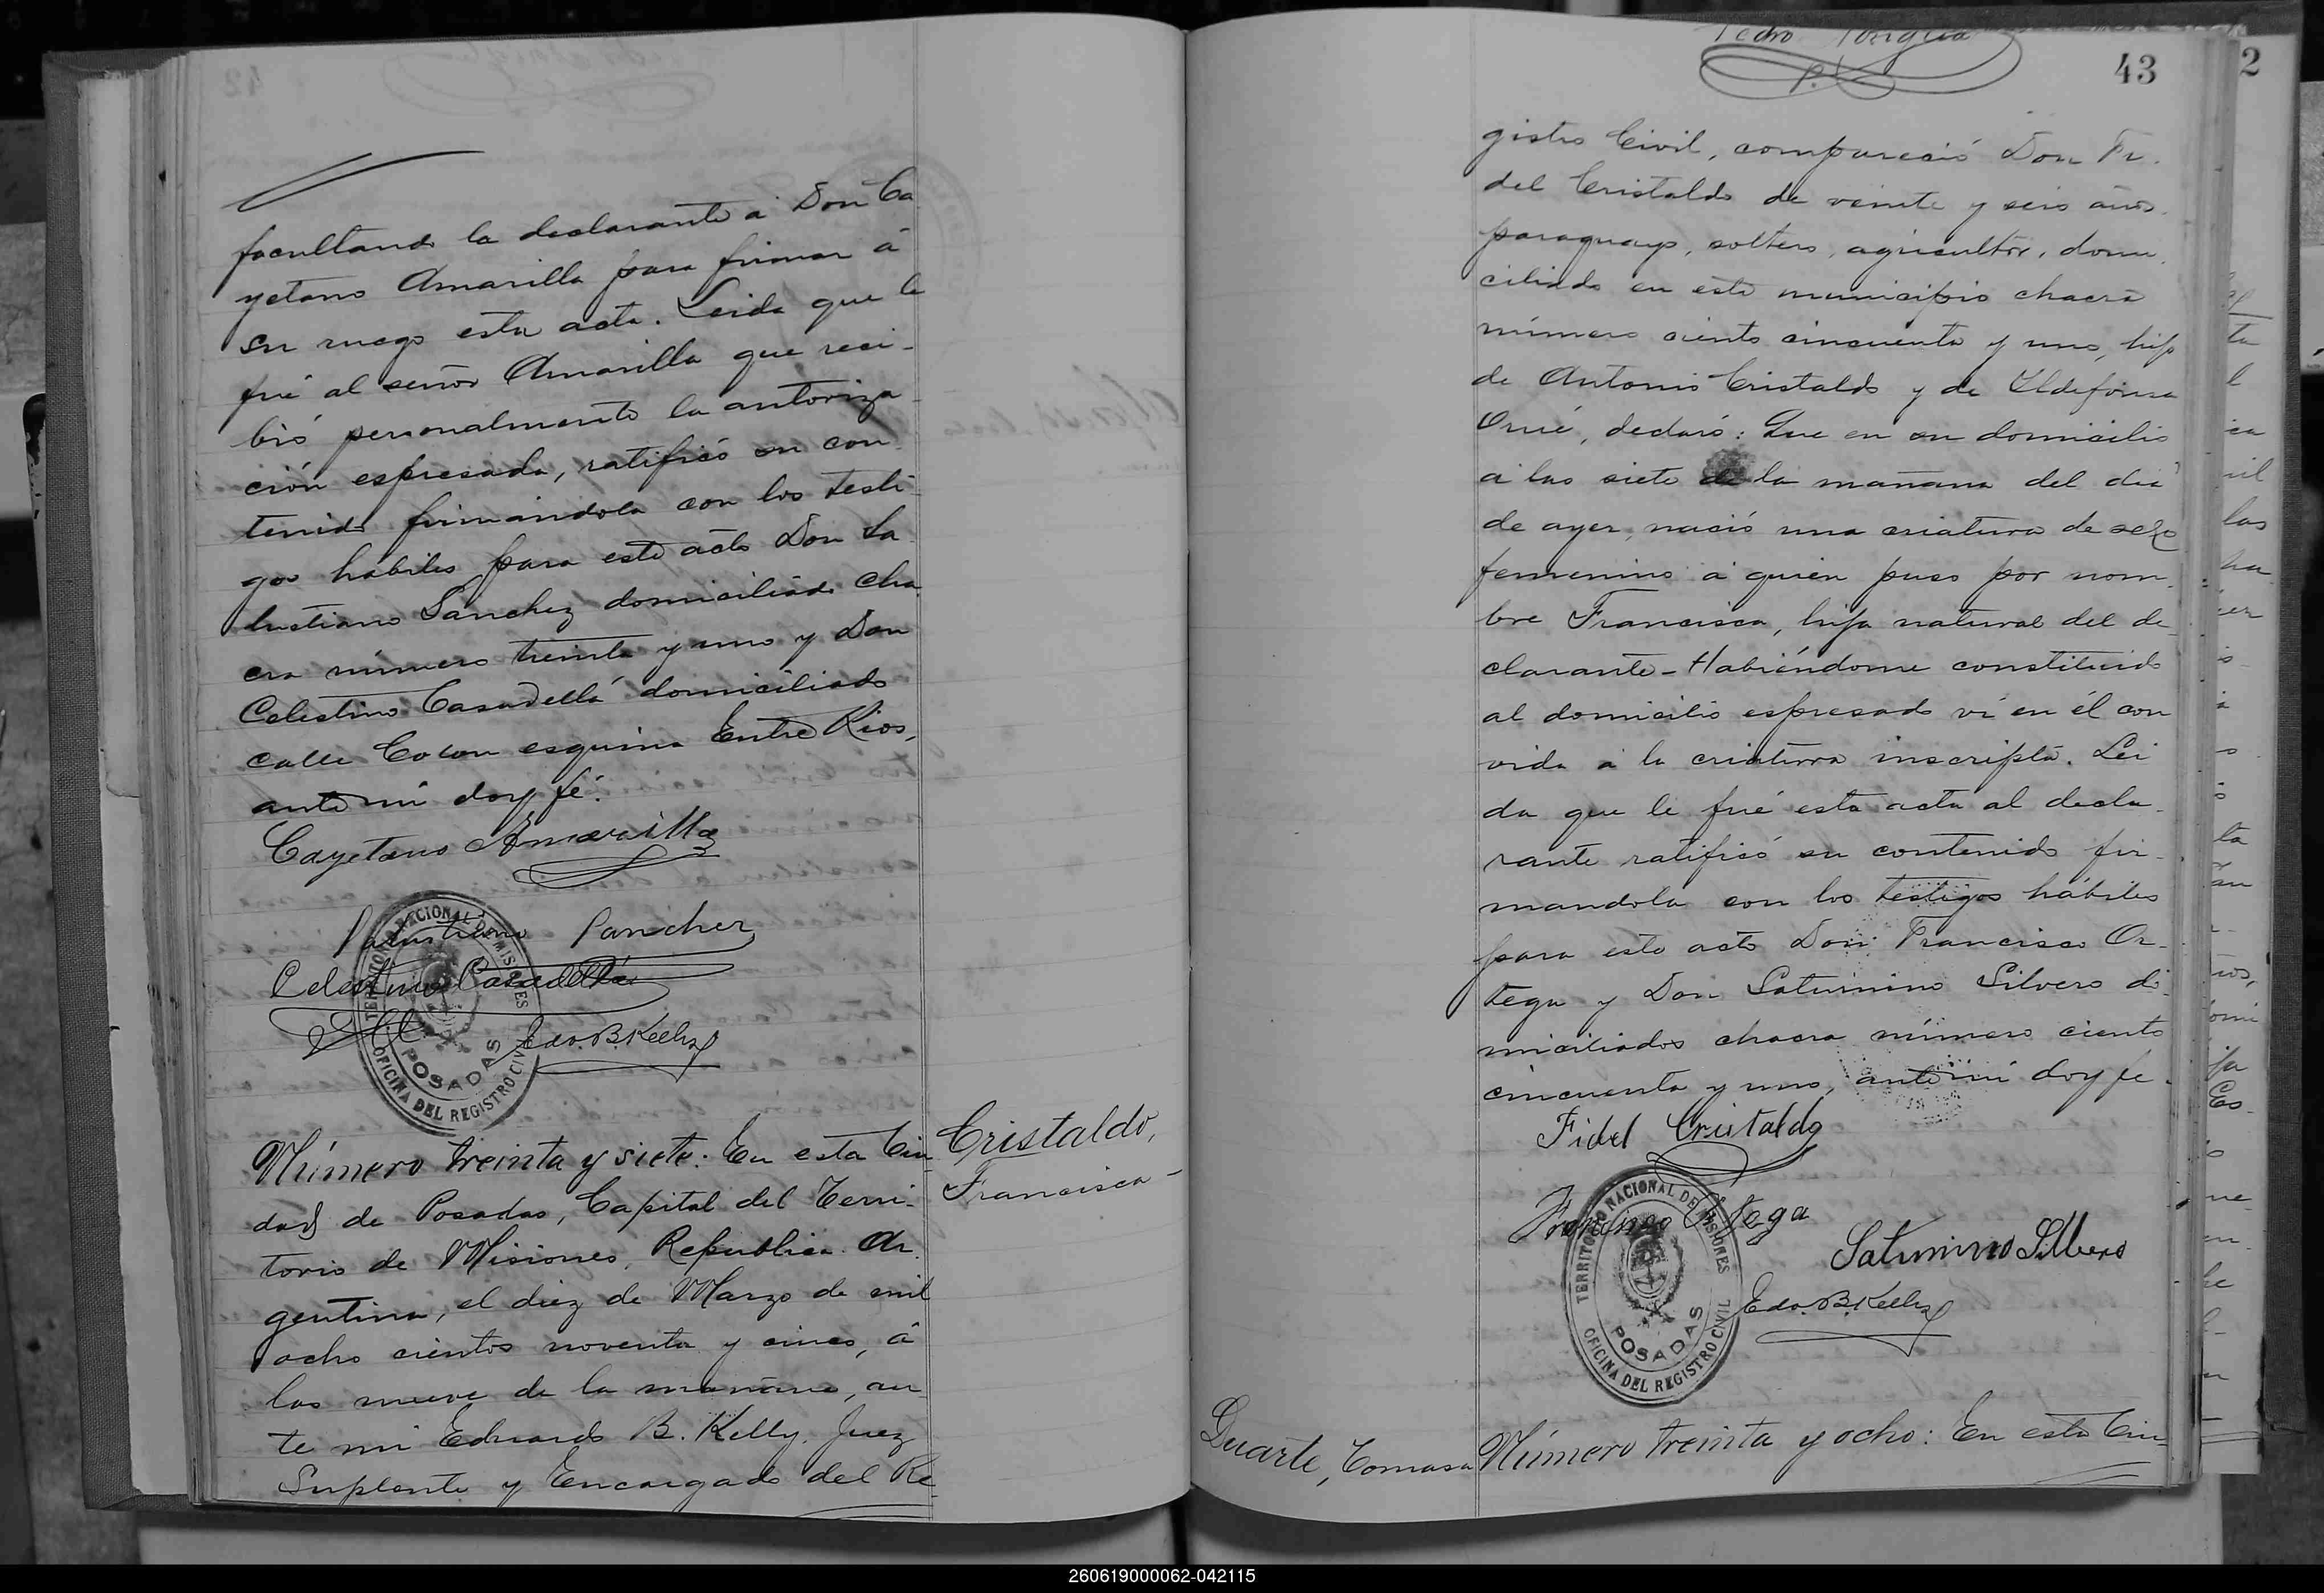 facultando la declarante á Don Ca
yetano Amarilla para firmar á
su ruego esta acta. Leida que le
fué al señor Amarilla que reci-
bió personalmente la autoriza
ción espresada, ratificó su con
tenido firmándola con los testi-
gos habiles para este acto Don Sa
lustiano Sanchez domiciliado cha
cra número treinta y uno y Don
Celestino Casadellá domiciliado
calle Colon esquina Entre Rios,
ante mi doy fé.
Cayetano Amarilla
Salustiano Sancher
Celestino Casadellá
Edo. B. Kelly
TERRITORIO NACIONAL DE MISIONES
POSADAS
OFICINA DEL REGISTRO CIVIL
Cristaldo,
Francisca
Número treinta y siete: En esta Ciu
dad de Posadas, Capital del Terri-
torio de Misiones, Republica Ar.
gentina, el diez de Marzo de mil
ocho cientos noventa y cinco, á
las nueve de la mañana, an
te mi Eduardo B. Kelly, Juez
Suplente y Encargado del Re
Pedro
43
gistro Civil, compareció Don Fi.
del Cristaldo de veinte y seis años
paraguayo, soltero, agricultor, domi.
ciliado en este municipio chacra
número ciento cincuenta y uno, hijo
de Antonio Cristaldo y de Ildefonsa
Orué, declaró: Que en su domicilio
a las siete de la mañana del dia
de ayer, nació una criatura de sexo
femenino á quien puso por nom
bre Francisca, hija natural del de
clarante - Habiéndome constituido
al domicilio espresado vi en él con
vida á la criatura inscripta. Lei
da que le fué esta acta al decla
rante ratificó su contenido fir-
mandola con los testigos hábiles
para este acto Don Francisco Or-
tega y Don Saturnino Silvero do
miciliados chacra número ciento
cincuenta y uno, ante mi doy fe.
Fidel Cristaldo
Francisco Ortega
Saturnino Silvero
Edo. B. Kelly
TERRITORIO NACIONAL DE MISIONES
POSADAS
OFICINA DEL REGISTRO CIVIL
Duarte, Tomasa
Número treinta y ocho: En esta Ciu-
2
260619000062-042115